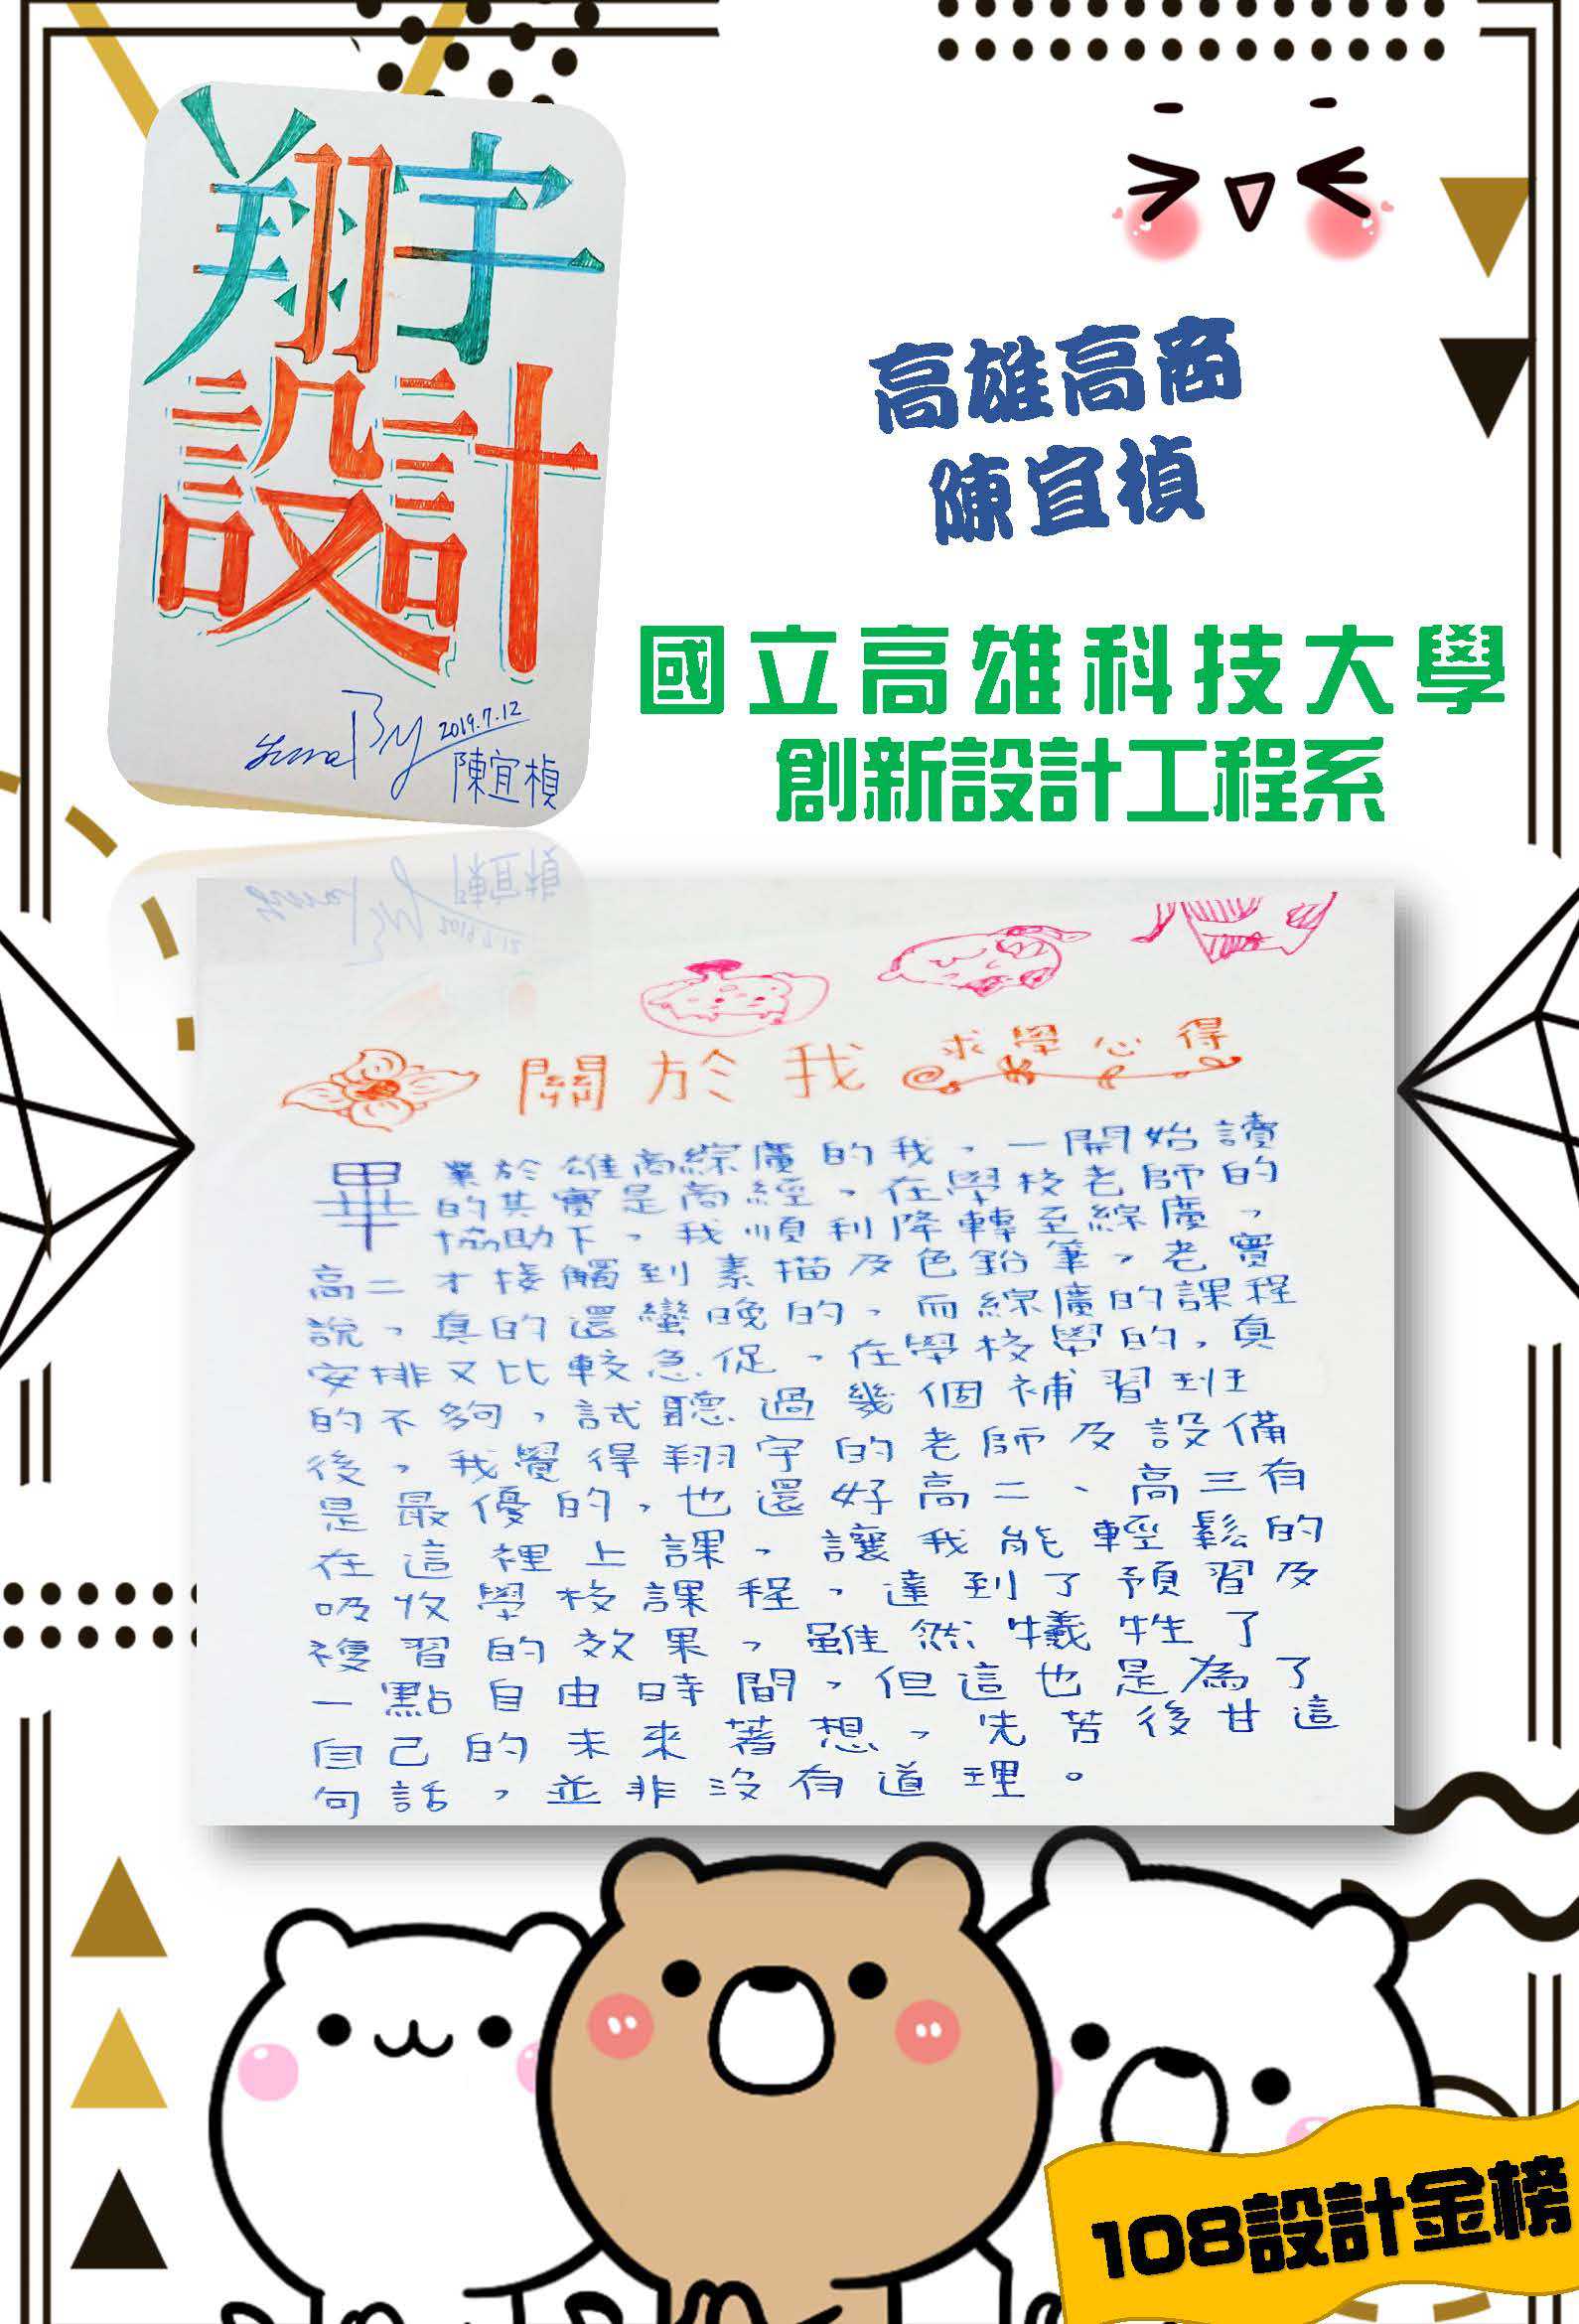 翔宇
設計
By 2019.7.12
陳宜楨
高雄高商
陳宜楨
國立高雄科技大學
創新設計工程系
關於我 求學心得
畢業於雄商綜廣的我，一開始讀
的其實是商經，在學校老師的
協助下，我順利降轉至綜廣，
高二才接觸到素描及色鉛筆，老實
說，真的還蠻晚的，而綜廣的課程
安排又比較急促，在學校學的，真
的不夠，試聽過幾個補習班
後，我覺得翔宇的老師及設備
是最優的，也還好高二、高三有
在這裡上課，讓我能輕鬆的
吸收學校課程，達到了預習及
複習的效果，雖然犧牲了
一點自由時間，但這也是為了
自己的未來著想，先苦後甘這
句話，並非沒有道理。
108設計金榜